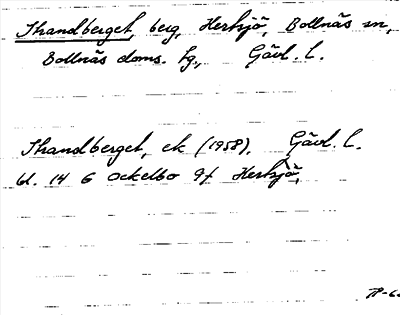 Thandberget, berg, Hertsjö, Bollnäs sn,
Bollnäs doms. tg., Gävl. l.
Thandberget, ek (1958), Gävl. l.
bl. 14 G Ockelbo 9f Hertsjö,